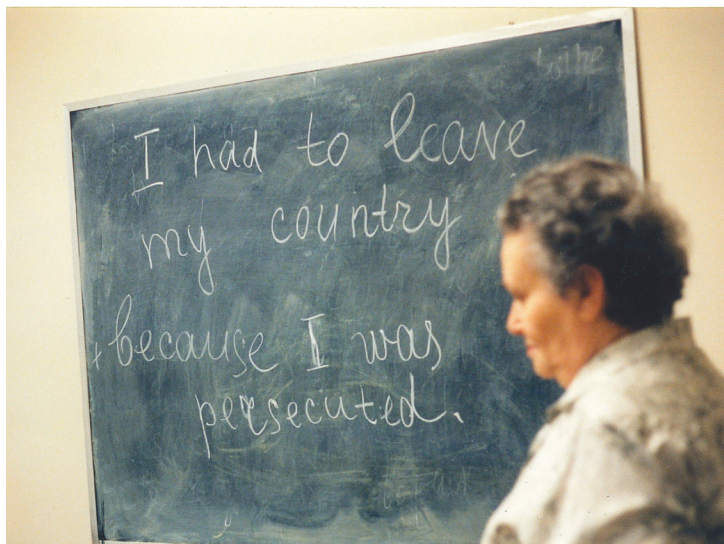 I had to leave
my country
because I was
persecuted.